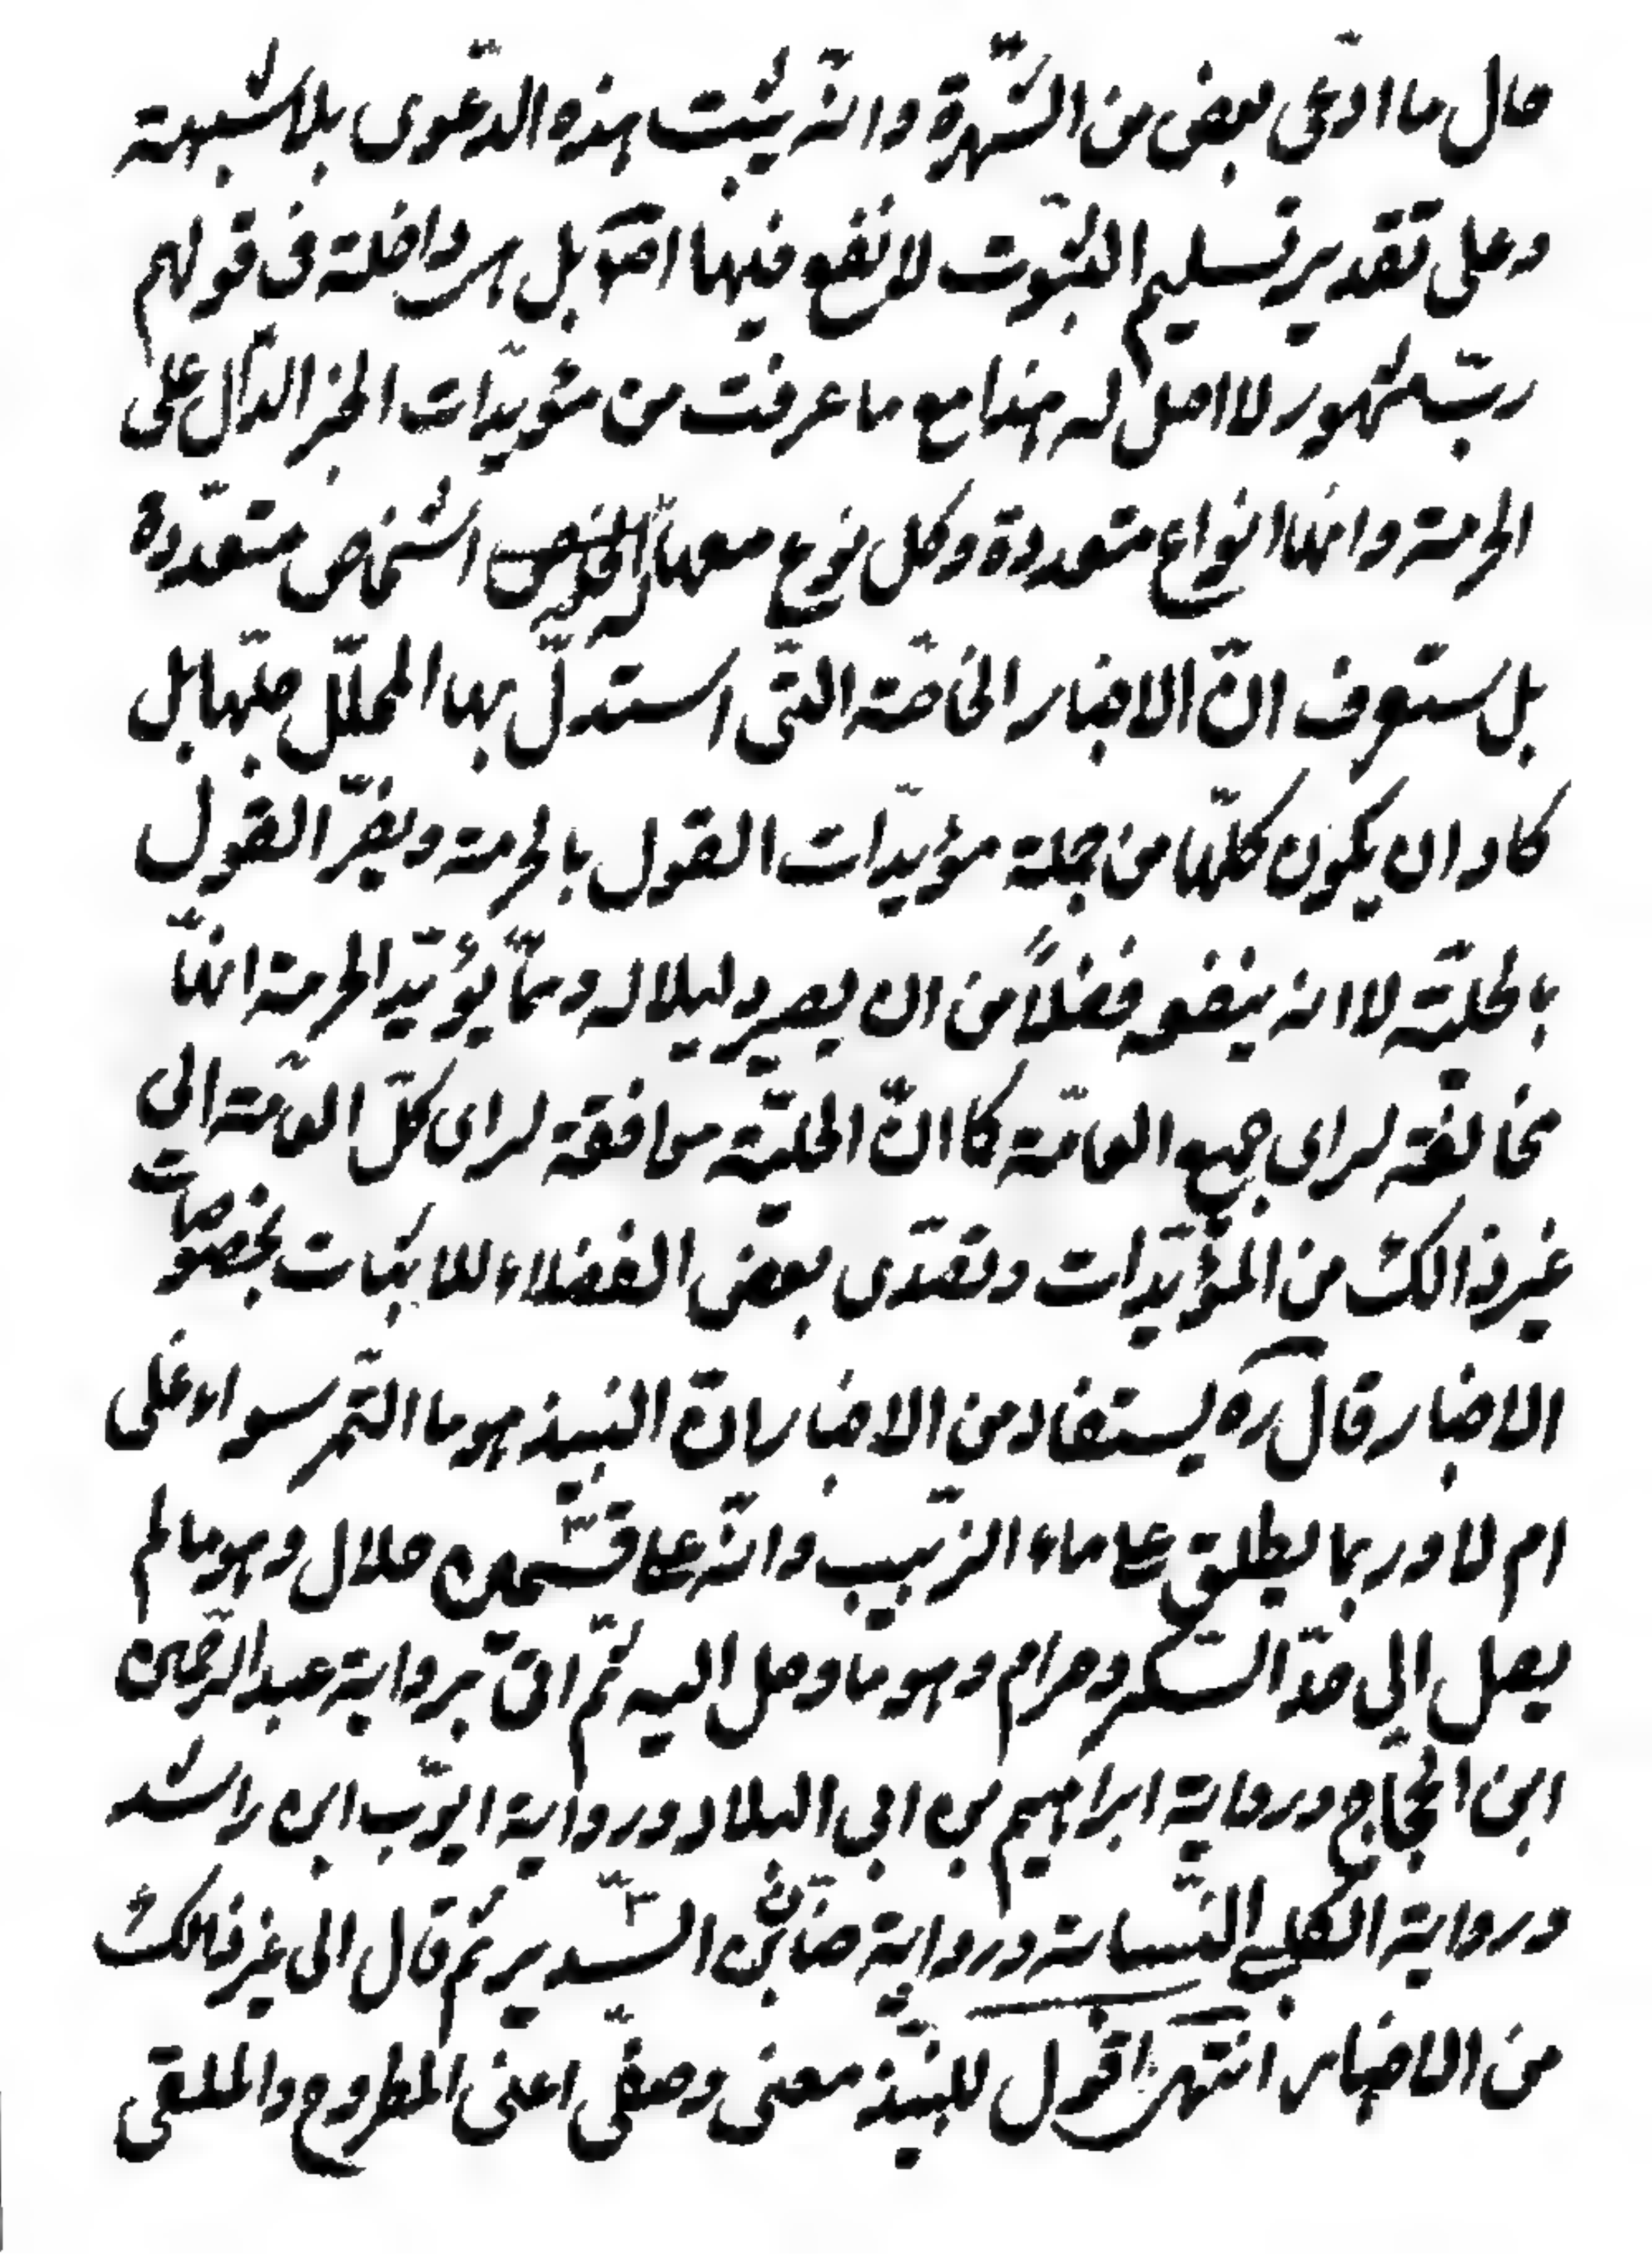 حال ما ادّعى بعض من الشّهرة وانّه يثبت بهذه الدّعوى بلا شبهة
وعلى تقدير تسليم الثّبوت لا نفع فيها اصّلا بل هى داخلة فى قولهم
ربّ مشهور لا اصل له هذا مع ما عرفت من مؤيّدات الخبر الدّال على
الحرمة وانّها انواع متعددة وكل نوع منها له اشخاص متعدّدة
بل ستعرف انّ الاخبار الخاصّة التّى استدلّ بها المحلّل منها بل
كاد ان يكون كلّها من جملة مؤيّدات القول بالحرمة ويضرّ القول
بالحليّة لا انه ينفعه فضلاً من ان يصير دليلا له وممّا يؤيّد الحرمة انّها
مخالفة لراى جميع العامّة كما انّ الحليّة موافقة لراى كلّ العامّة الى
غير ذالك من المؤيّدات وتصدّى بعض الفضلاء للاثبات بخصوصات
الاخبار قال ره يستفاد من الاخبار انّ النبيذ هو ماء التّمر سواء غلى
ام لا وربما يطلق على ماء الزّبيب وانّه على قسّمين حلال وهو ما لم
يصل الى حدّ السّكر وحرام وهو ما وصل اليه ثمّ اتى برواية عبد الرّحمن
ابن الحجّاج ورواية ابراهيم بن ابى البلاد ورواية ايّوب ابن راشد
ورواية الكلبى النّسابة ورواية حنان بن السّدير ثم قال الى غير ذالك
من الاخبار انتهى اقول للنبيّذ معنى وصفّى اعنى المطروح والملقى